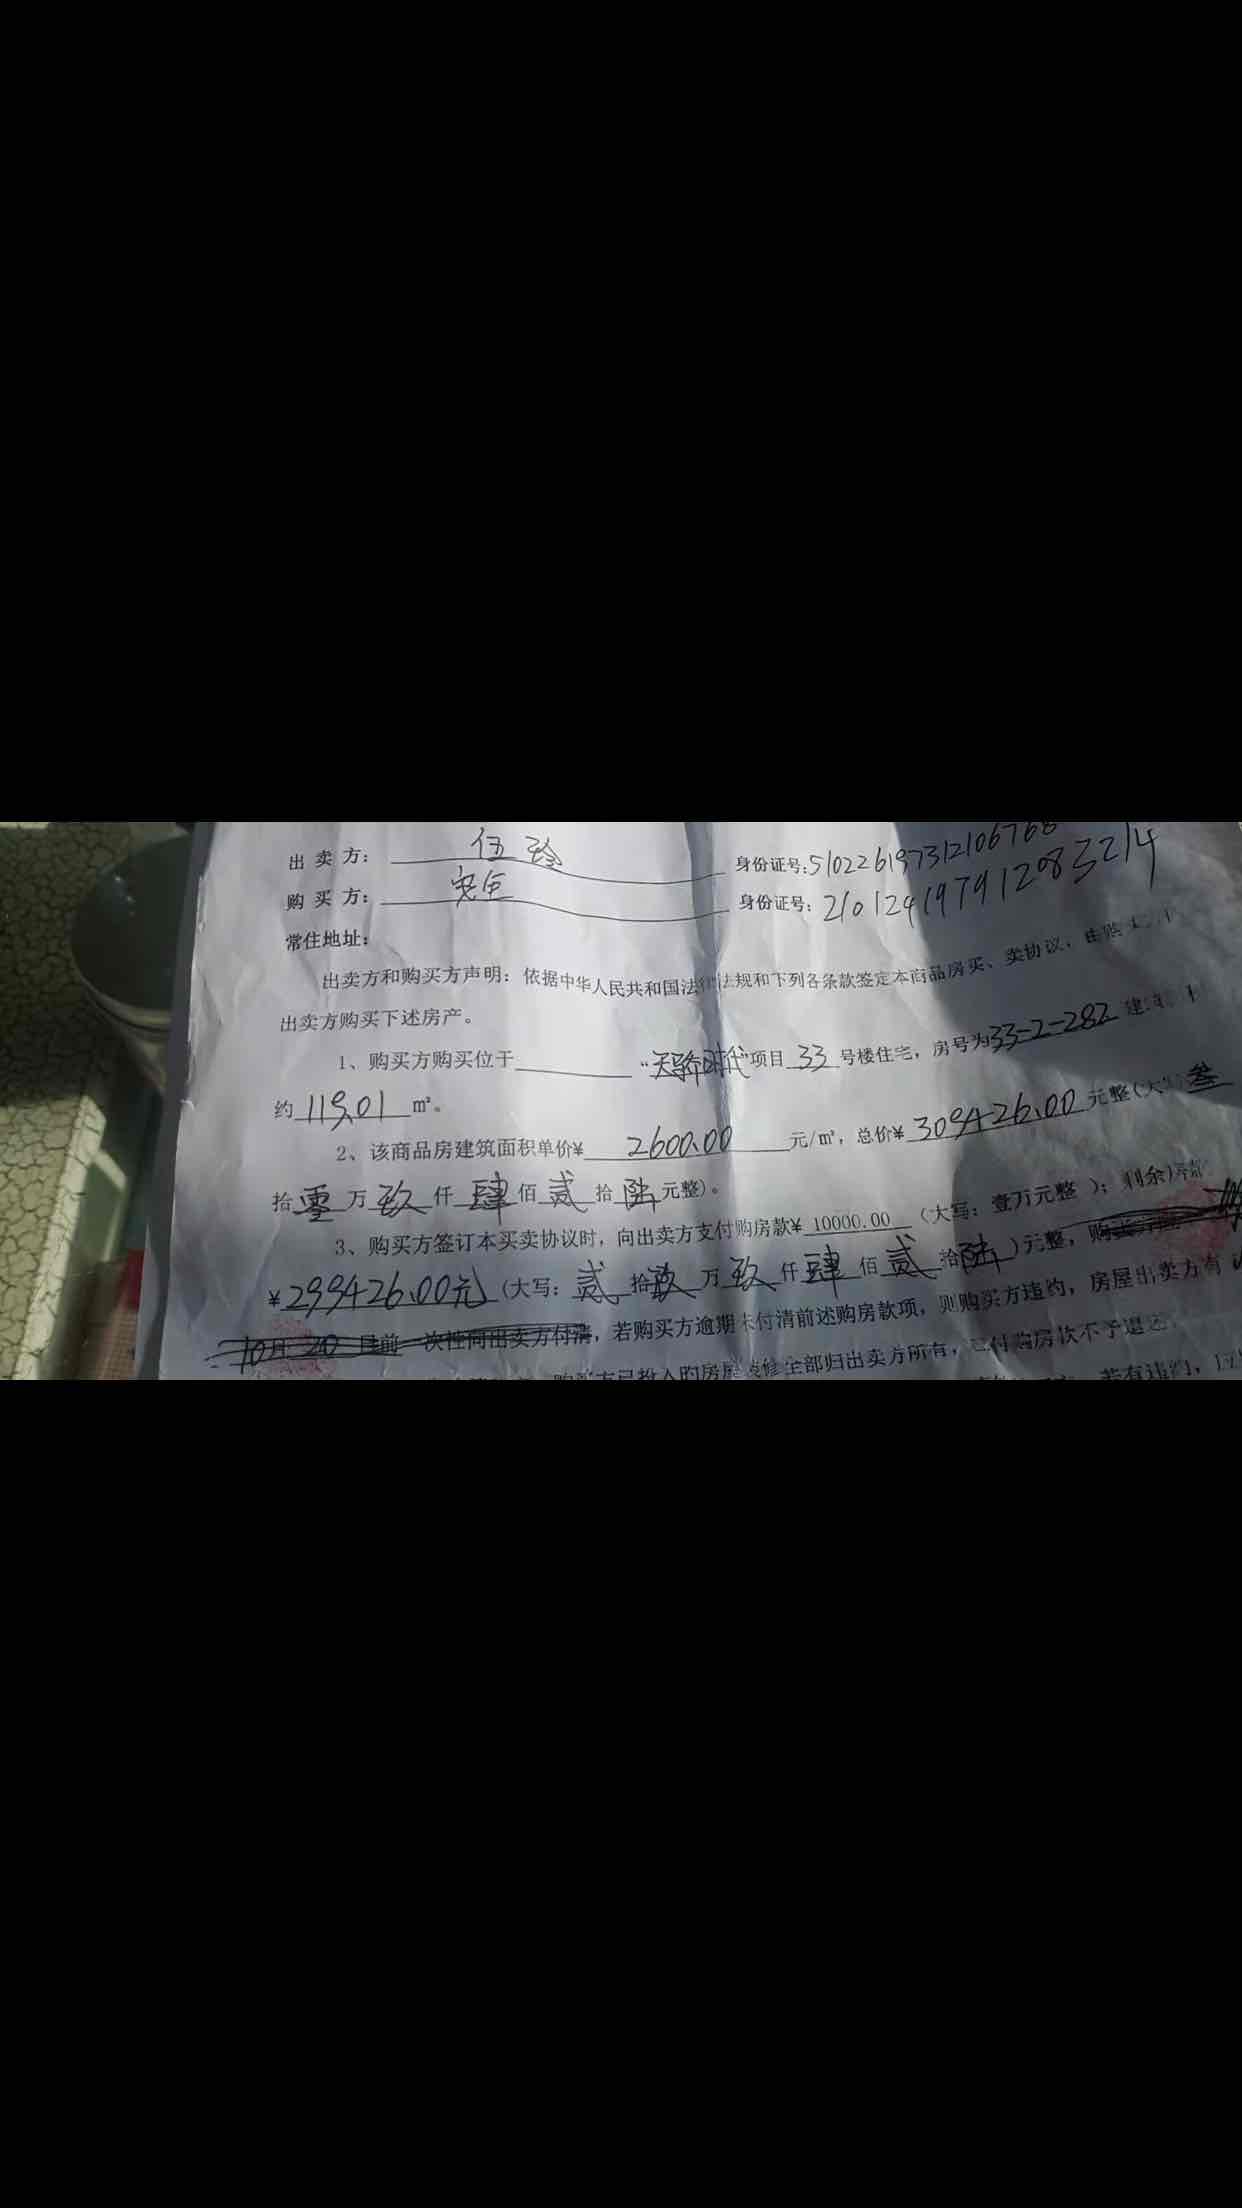 出 卖 方： 伍 身份证号:510226197312106768
购 买 方： 身份证号：210124197912083214
常住地址：
出卖方和购买方声明：依据中华人民共和国法律法规和下列各条款签定本商品房买、卖协议，由购
出卖方购买下述房产。
1、购买方购买位于 “天骄时代”项目 33 号楼住宅，房号为33-2-282 建
约 119.01 ㎡。
2、该商品房建筑面积单价¥ 2600.00 元/㎡，总价¥ 309426.00 元整（大写 叁
拾 零 万 玖 仟 肆 佰 贰 拾 陆 元整）。
3、购买方签订本买卖协议时，向出卖方支付购房款¥ 10000.00 （大写：壹万元整 ）；剩余
¥299426.00元（大写：贰 拾 玖 万 玖 仟 肆 佰 贰 拾 陆 ）元整，购
10月 20 日前一次性向出卖方付清，若购买方逾期未付清前述购房款项，则购买方违约，房屋出卖方有
购买方已投入的房屋装修全部归出卖方所有，已付购房款不予退还
若有违约，